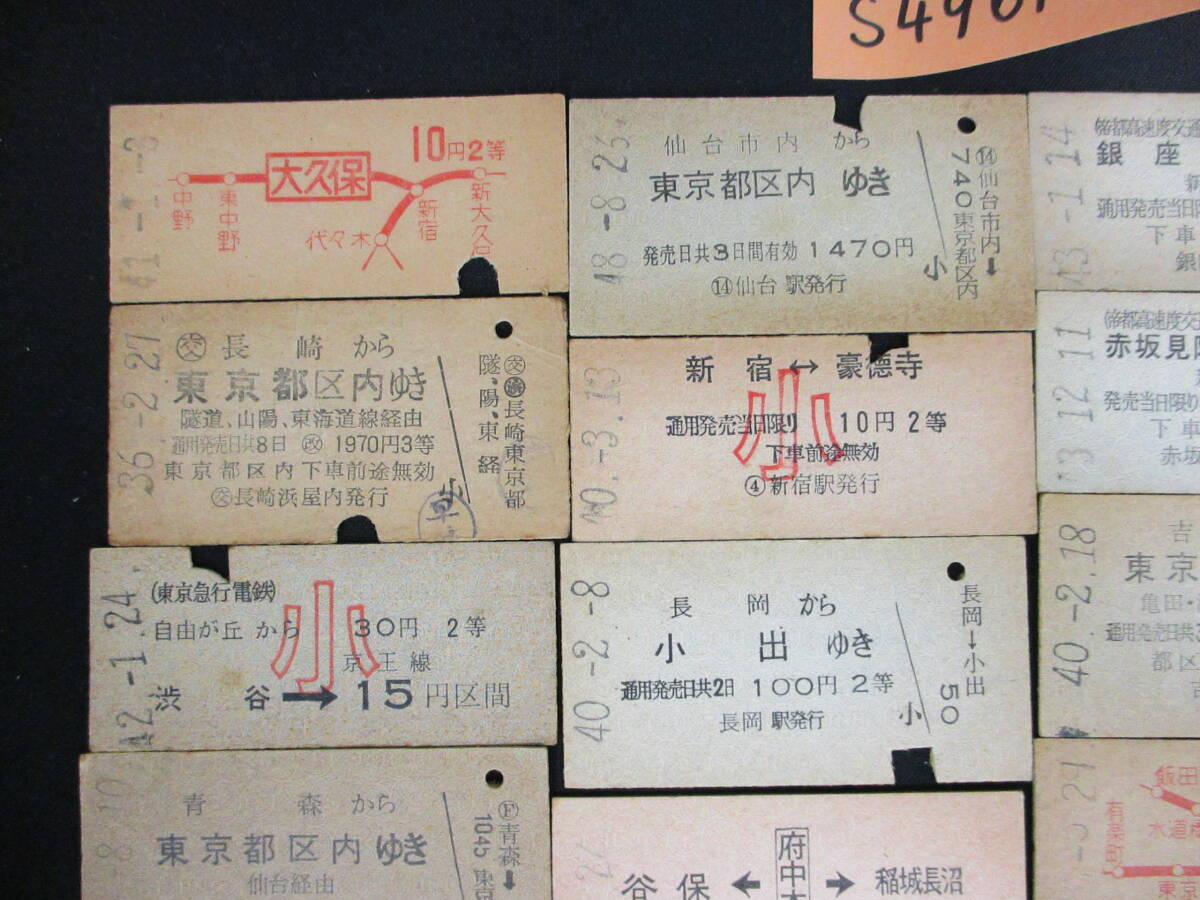 S496
10円2等
大久保
中野
東中野
新宿
代々木
新大久
41-1-8
仙台市内 から
東京都区内 ゆき
発売日共3日間有効 1470円
⑭仙台 駅発行
小
⑭仙台市内→
740東京都区内
48-8.26
銀座
通用発売当日限
下車
銀
43-1.14
㋛長崎から
東京都区内ゆき
隧道、山陽、東海道線経由
通用発売日共8日 ㊢ 1970円3等
東京都区内下車前途無効
長崎浜屋内発行
小
隧、陽、東 経
長崎東京都
36-2.27
新宿↔豪徳寺
小
通用発売当日限り 10円2等
下車前途無効
④新宿駅発行
40-3.13
赤坂見
発売当日限り
下車
赤坂
43 12 11
(東京急行電鉄)
自由が丘 から 30円 2等
小
京王線
渋谷→15円区間
42-1.24
長岡から
小出ゆき
通用発売日共2日 100円2等
長岡 駅発行
小
長岡→小出
50
40-2-8
吉
東京
亀田・
通用発売日共
都区
40-2.18
青森から
東京都区内ゆき
仙台経由
Ⓕ青森→
1045 東京
谷保←府中本→稲城長沼
飯田
水道
有楽町
東京